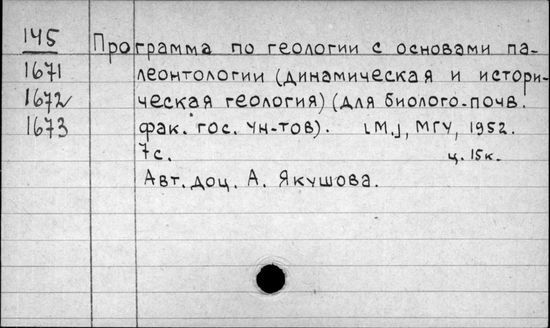 145 Программа по геологии с основами па-
1671 леонтологии (динамическая и истори-
1672 ческая геология) (для биолого-почв.
1673 фак. гос. ун-тов). [М.], МГУ, 1952.
7с. ц. 15к.
Авт. доц. А. Якушова.